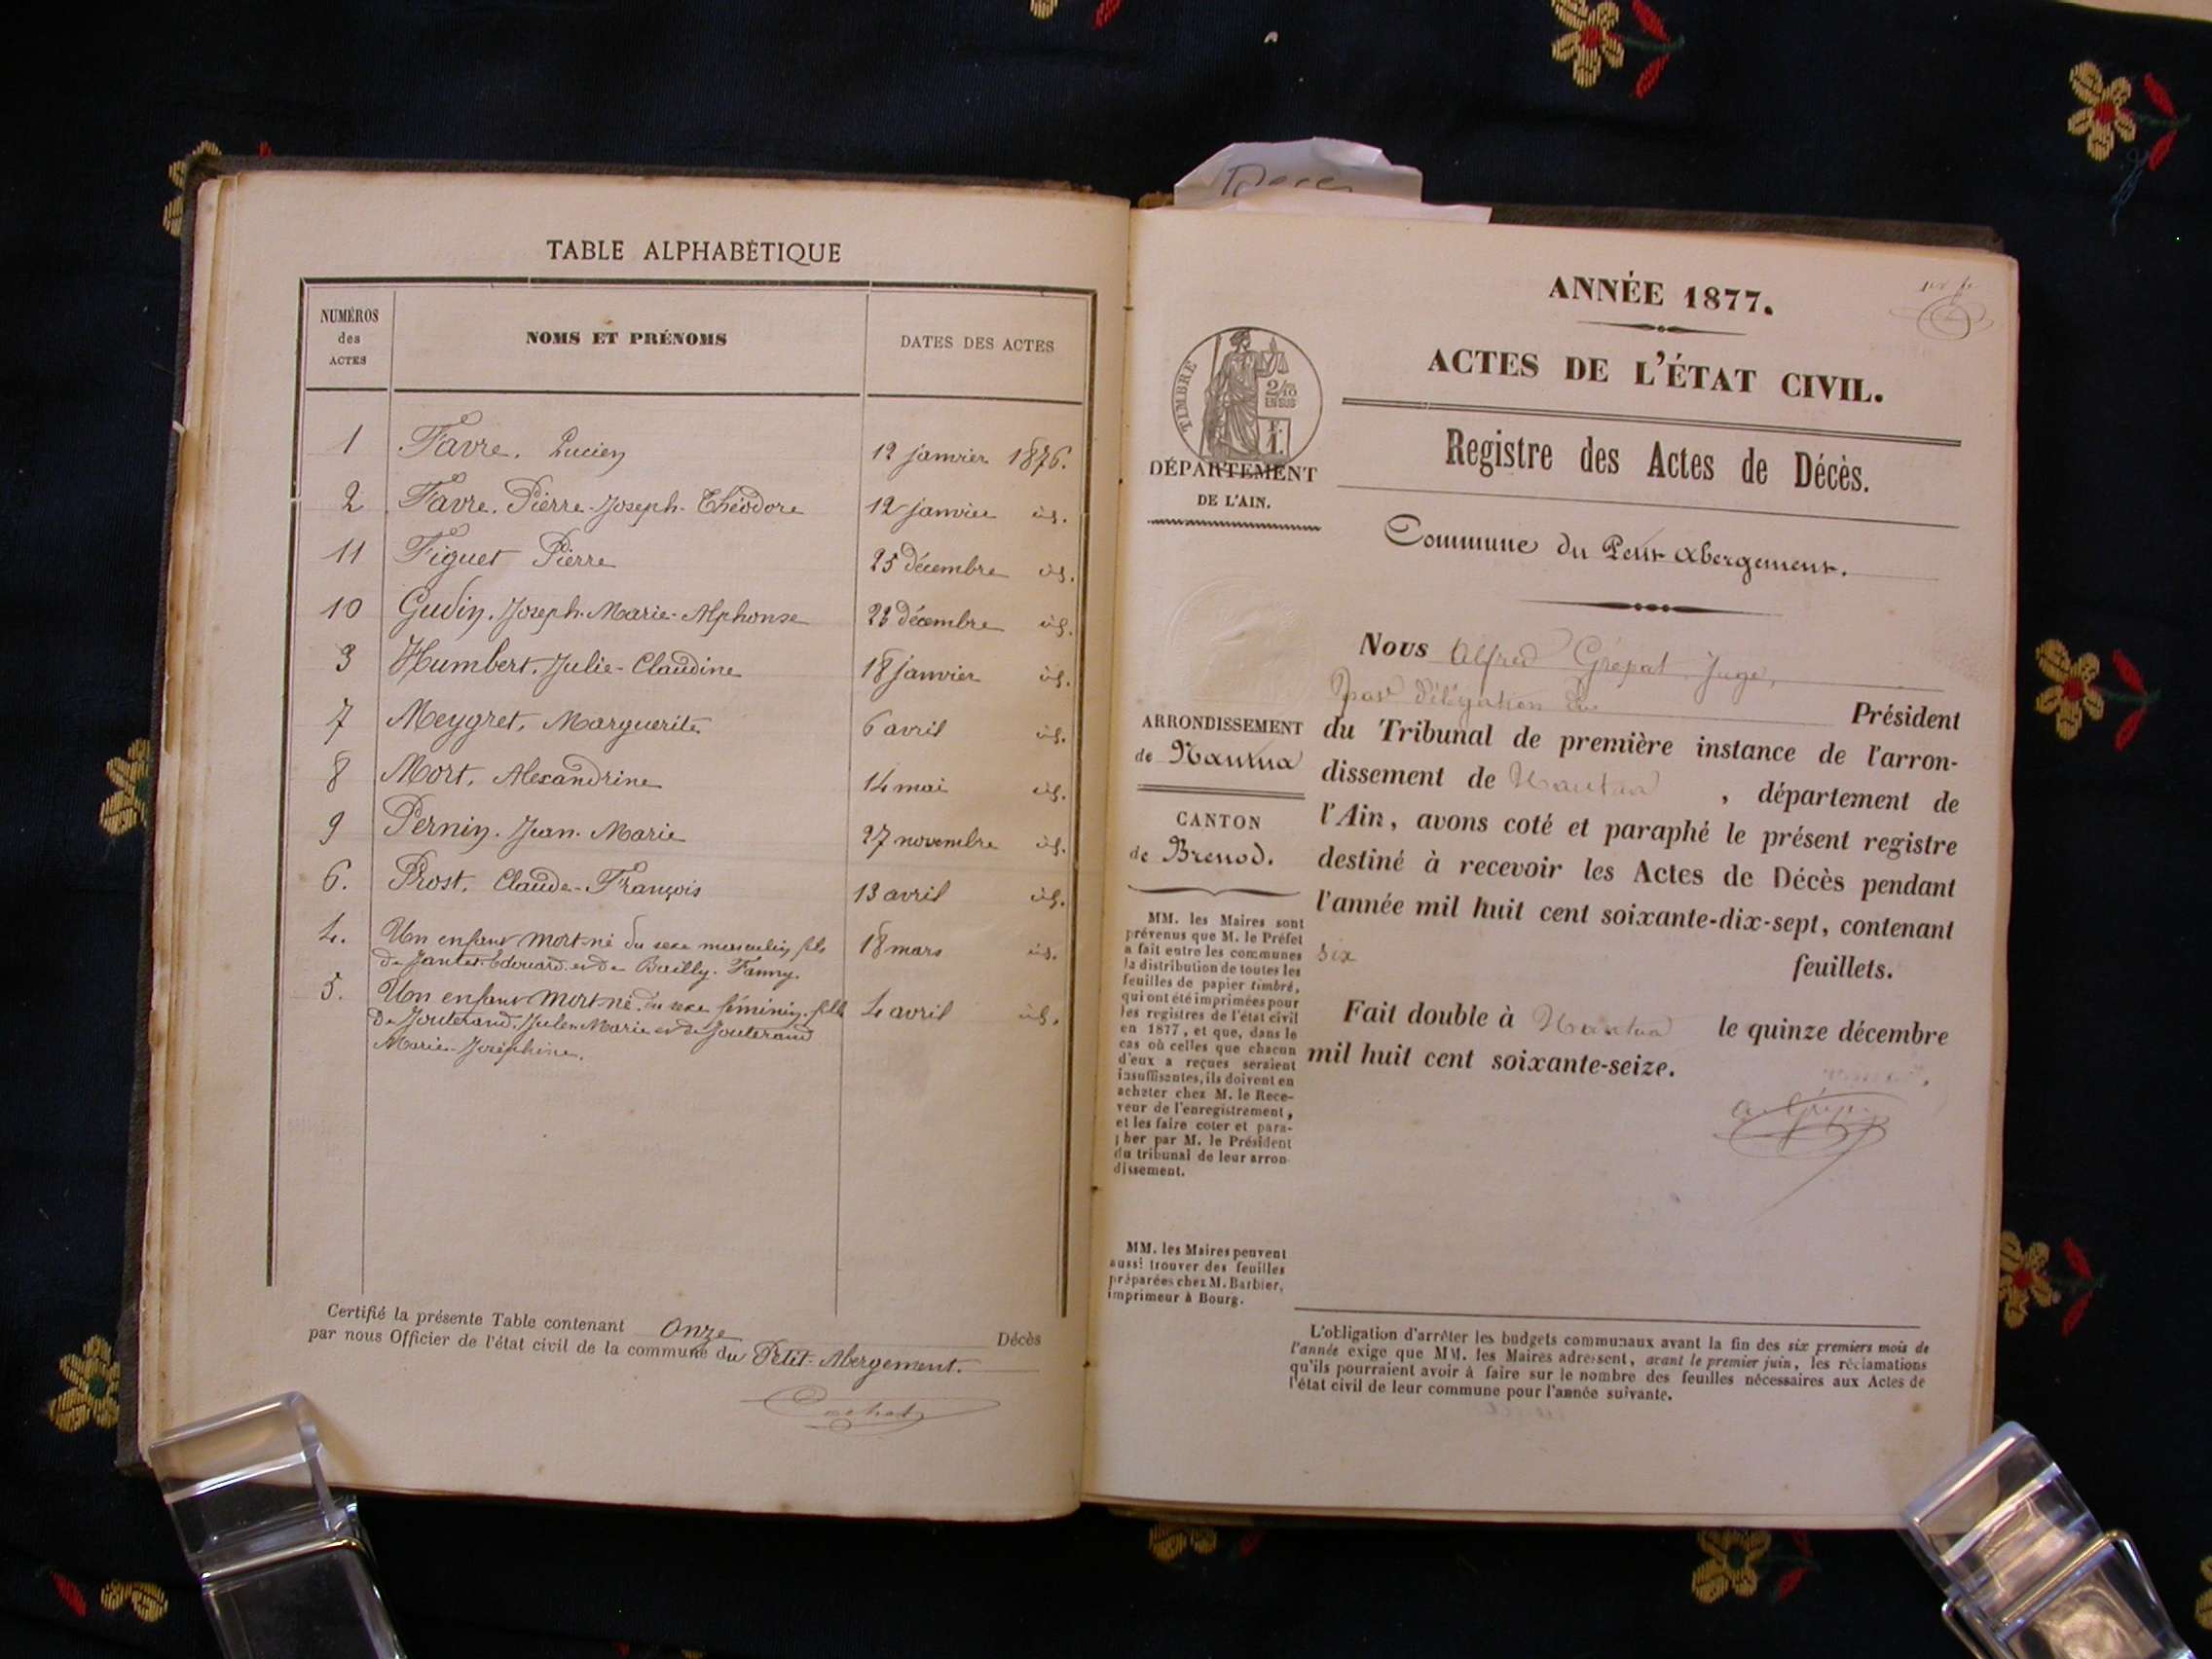 TABLE ALPHABÉTIQUE
NUMÉROS
des
ACTES
NOMS ET PRÉNOMS
DATES DES ACTES
1 Favre. Lucien 12 janvier 1876.
2 Favre. Pierre-Joseph-Théodore 12 janvier id.
11 Figuet Pierre 25 décembre id.
10 Gudin. Joseph-Marie-Alphonse 23 décembre id.
3 Humbert. Julie-Claudine 18 janvier id.
7 Meygret, Marguerite 6 avril id.
8 Mort, Alexandrine 14 mai id.
9 Pernin. Jean-Marie 27 novembre id.
6. Prost. Claude-François 13 avril id.
4. Un enfant mort-né du sexe masculin, fils 18 mars id.
de Jantet Edouard et de Bailly. Fanny.
5. Un enfant mort-né du sexe féminin, fille 4 avril id.
De Jouterand. Jules Marie et de Jouterand
Marie-Joséphine.
Certifié la présente Table contenant Onze Décès
par nous Officier de l'état civil de la commune du Petit-Abergement.
Cochet
Décès
ANNÉE 1877.
ACTES DE L'ÉTAT CIVIL.
Registre des Actes de Décès.
Commune du Petit Abergement.
TIMBRE
2/10
EN SUS
F.
1.
DÉPARTEMENT
DE L'AIN.
ARRONDISSEMENT
de Nantua
CANTON
de Brenod.
MM. les Maires sont
prévenus que M. le Préfet
a fait entre les communes
la distribution de toutes les
feuilles de papier timbré,
qui ont été imprimées pour
les registres de l'état civil
en 1877, et que, dans le
cas où celles que chacun
d'eux a reçues seraient
insuffisantes, ils doivent en
acheter chez M. le Rece-
veur de l'enregistrement,
et les faire coter et para-
pher par M. le Président
du tribunal de leur arron-
dissement.
MM. les Maires peuvent
aussi trouver des feuilles
préparées chez M. Barbier,
imprimeur à Bourg.
Nous Alfred Grépat, Juge,
par délégation du Président
du Tribunal de première instance de l'arron-
dissement de Nantua , département de
l'Ain, avons coté et paraphé le présent registre
destiné à recevoir les Actes de Décès pendant
l'année mil huit cent soixante-dix-sept, contenant
six feuillets.
Fait double à Nantua le quinze décembre
mil huit cent soixante-seize.
L'obligation d'arrêter les budgets communaux avant la fin des six premiers mois de
l'année exige que MM. les Maires adressent, avant le premier juin, les réclamations
qu'ils pourraient avoir à faire sur le nombre des feuilles nécessaires aux Actes de
l'état civil de leur commune pour l'année suivante.